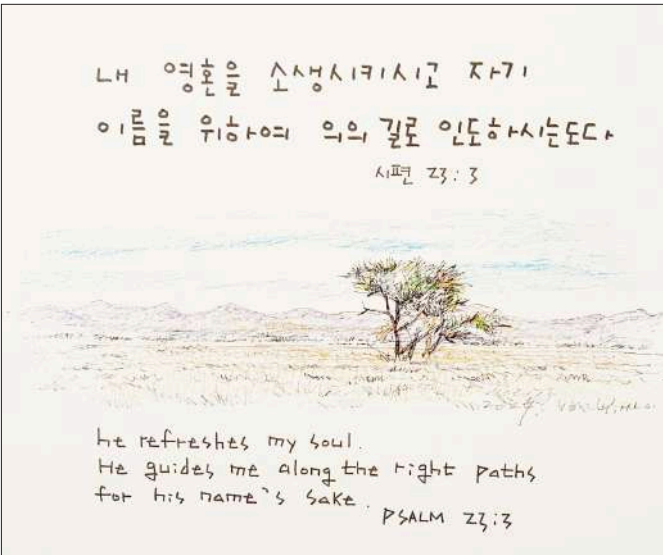 내 영혼을 소생시키시고 자기
이름을 위하여 의의 길로 인도하시는도다
시편 23:3
2024.
he refreshes my soul.
He guides me along the right paths
for his name's sake.
PSALM 23:3